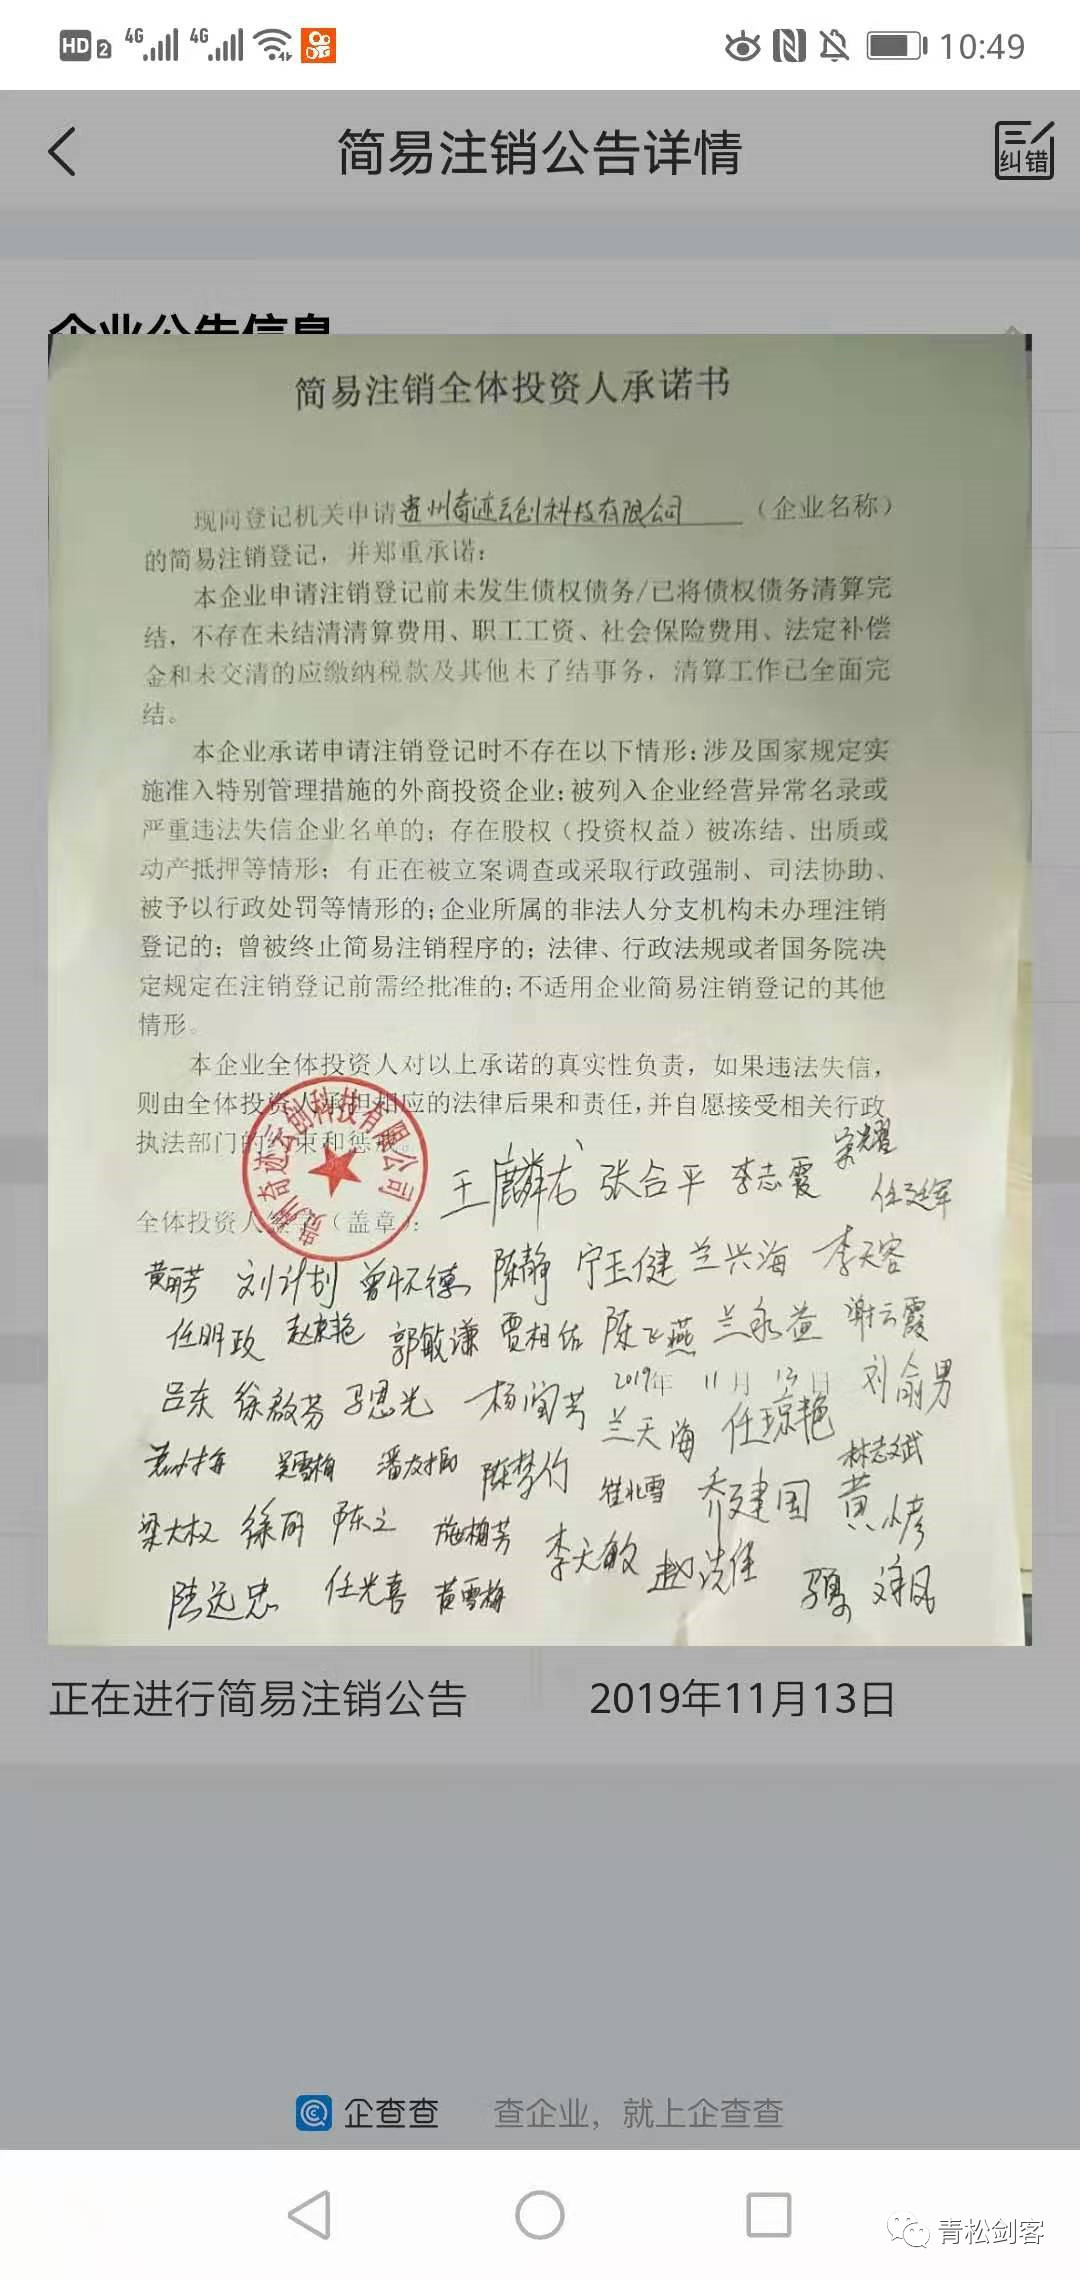 HD 2 4G 4G 10:49
简易注销公告详情
纠错
企业公告信息
简易注销全体投资人承诺书
现向登记机关申请贵州奇迹云创科技有限公司（企业名称）
的简易注销登记，并郑重承诺：
本企业申请注销登记前未发生债权债务/已将债权债务清算完
结，不存在未结清清算费用、职工工资、社会保险费用、法定补偿
金和未交清的应缴纳税款及其他未了结事务，清算工作已全面完
结。
本企业承诺申请注销登记时不存在以下情形：涉及国家规定实
施准入特别管理措施的外商投资企业；被列入企业经营异常名录或
严重违法失信企业名单的；存在股权（投资权益）被冻结、出质或
动产抵押等情形；有正在被立案调查或采取行政强制、司法协助、
被予以行政处罚等情形的；企业所属的非法人分支机构未办理注销
登记的；曾被终止简易注销程序的；法律、行政法规或者国务院决
定规定在注销登记前需经批准的；不适用企业简易注销登记的其他
情形。
本企业全体投资人对以上承诺的真实性负责，如果违法失信，
则由全体投资人承担相应的法律后果和责任，并自愿接受相关行政
执法部门的约束和惩戒。
贵州奇迹云创科技有限公司
王麟 张合平 李志霞 宋耀
任廷军
全体投资人签字（盖章）：
黄丽芳 刘计划 曾怀德 陈静 宁玉健 兰兴海 李天容
任明政 赵艳 郭敏谦 贾相佑 陈飞燕 兰永益 谢云霞
2019年 11月 13日
吕东 徐啟芬 马恩光 杨闰芳 兰天海 任琼艳 刘俞男
吴雪梅 潘友 陈梦竹 崔北雪 乔建国 林志斌
梁大权 徐丽 陈立 施梅芳 李天敏 赵洪佳 黄
陆远忠 任光喜 黄雪梅
正在进行简易注销公告 2019年11月13日
企查查 查企业，就上企查查
青松剑客